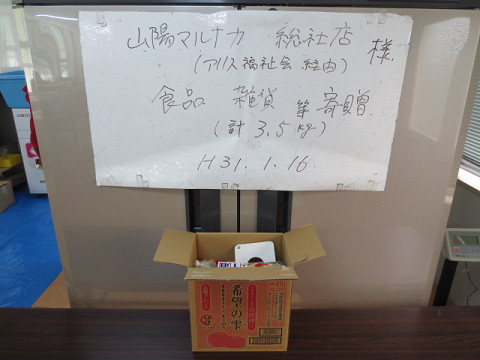 山陽マルナカ 総社店 様
(アリス福祉会 経由)
食品 雑貨 等 寄贈
(計 3.5kg)
H31.1.16.
希望の雫